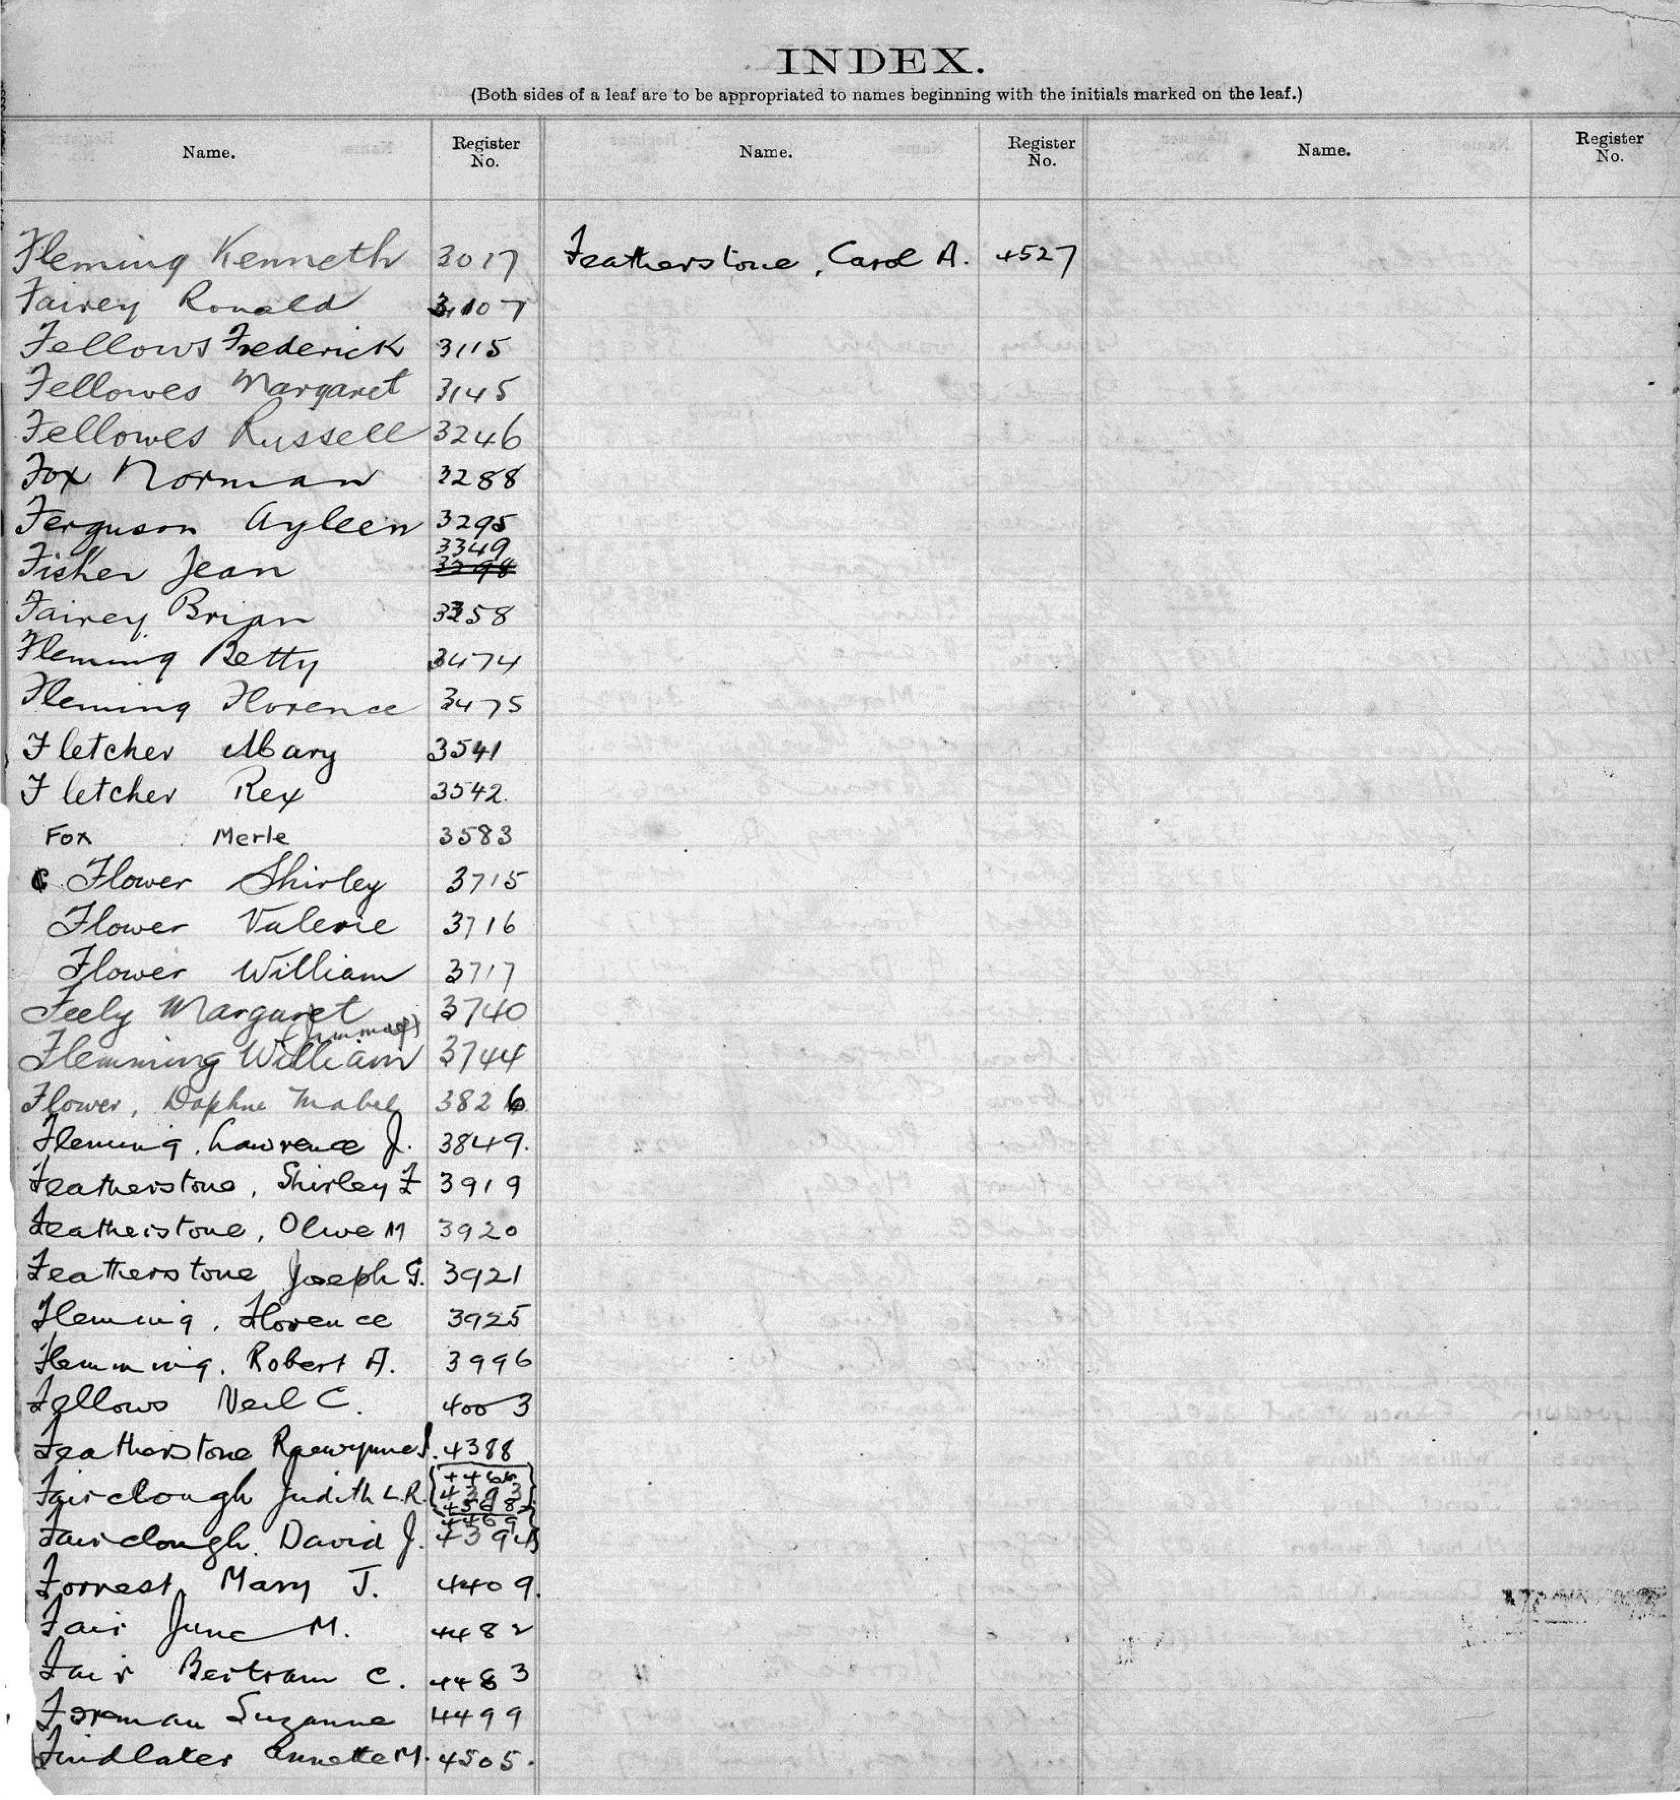 INDEX.
(Both sides of a leaf are to be appropriated to names beginning with the initials marked on the leaf.)
Name. Register No. Name. Register No. Name. Register No.
Fleming Kenneth 3017
Fairey Ronald 3107
Fellows Frederick 3115
Fellowes Margaret 3145
Fellowes Russell 3246
Fox Norman 3288
Ferguson Ayleen 3295
3349
Fisher Jean 3298
Fairey Brian 3358
Fleming Betty 3474
Fleming Florence 3475
Fletcher Mary 3541
Fletcher Rex 3542.
Fox Merle 3583
Flower Shirley 3715
Flower Valerie 3716
Flower William 3717
Feely Margaret 3740
Flemming William 3744
Flower, Daphne Mabel 3826
Fleming, Lawrence J. 3849.
Featherstone, Shirley F 3919
Featherstone, Olive M 3920
Featherstone Joseph G. 3921
Fleming, Florence 3925
Flemming, Robert A. 3996
Fellows Neil C. 4003
Featherstone Raewynne J. 4388
4466
Fairclough Judith L.R. 4393
4568
4469
Fairclough David J. 4394
Forrest Mary J. 4409.
Fair June M. 4482
Fair Bertram C. 4483
Foreman Suzanne 4499
Findlater Annette M. 4505.
Featherstone, Carol A. 4527